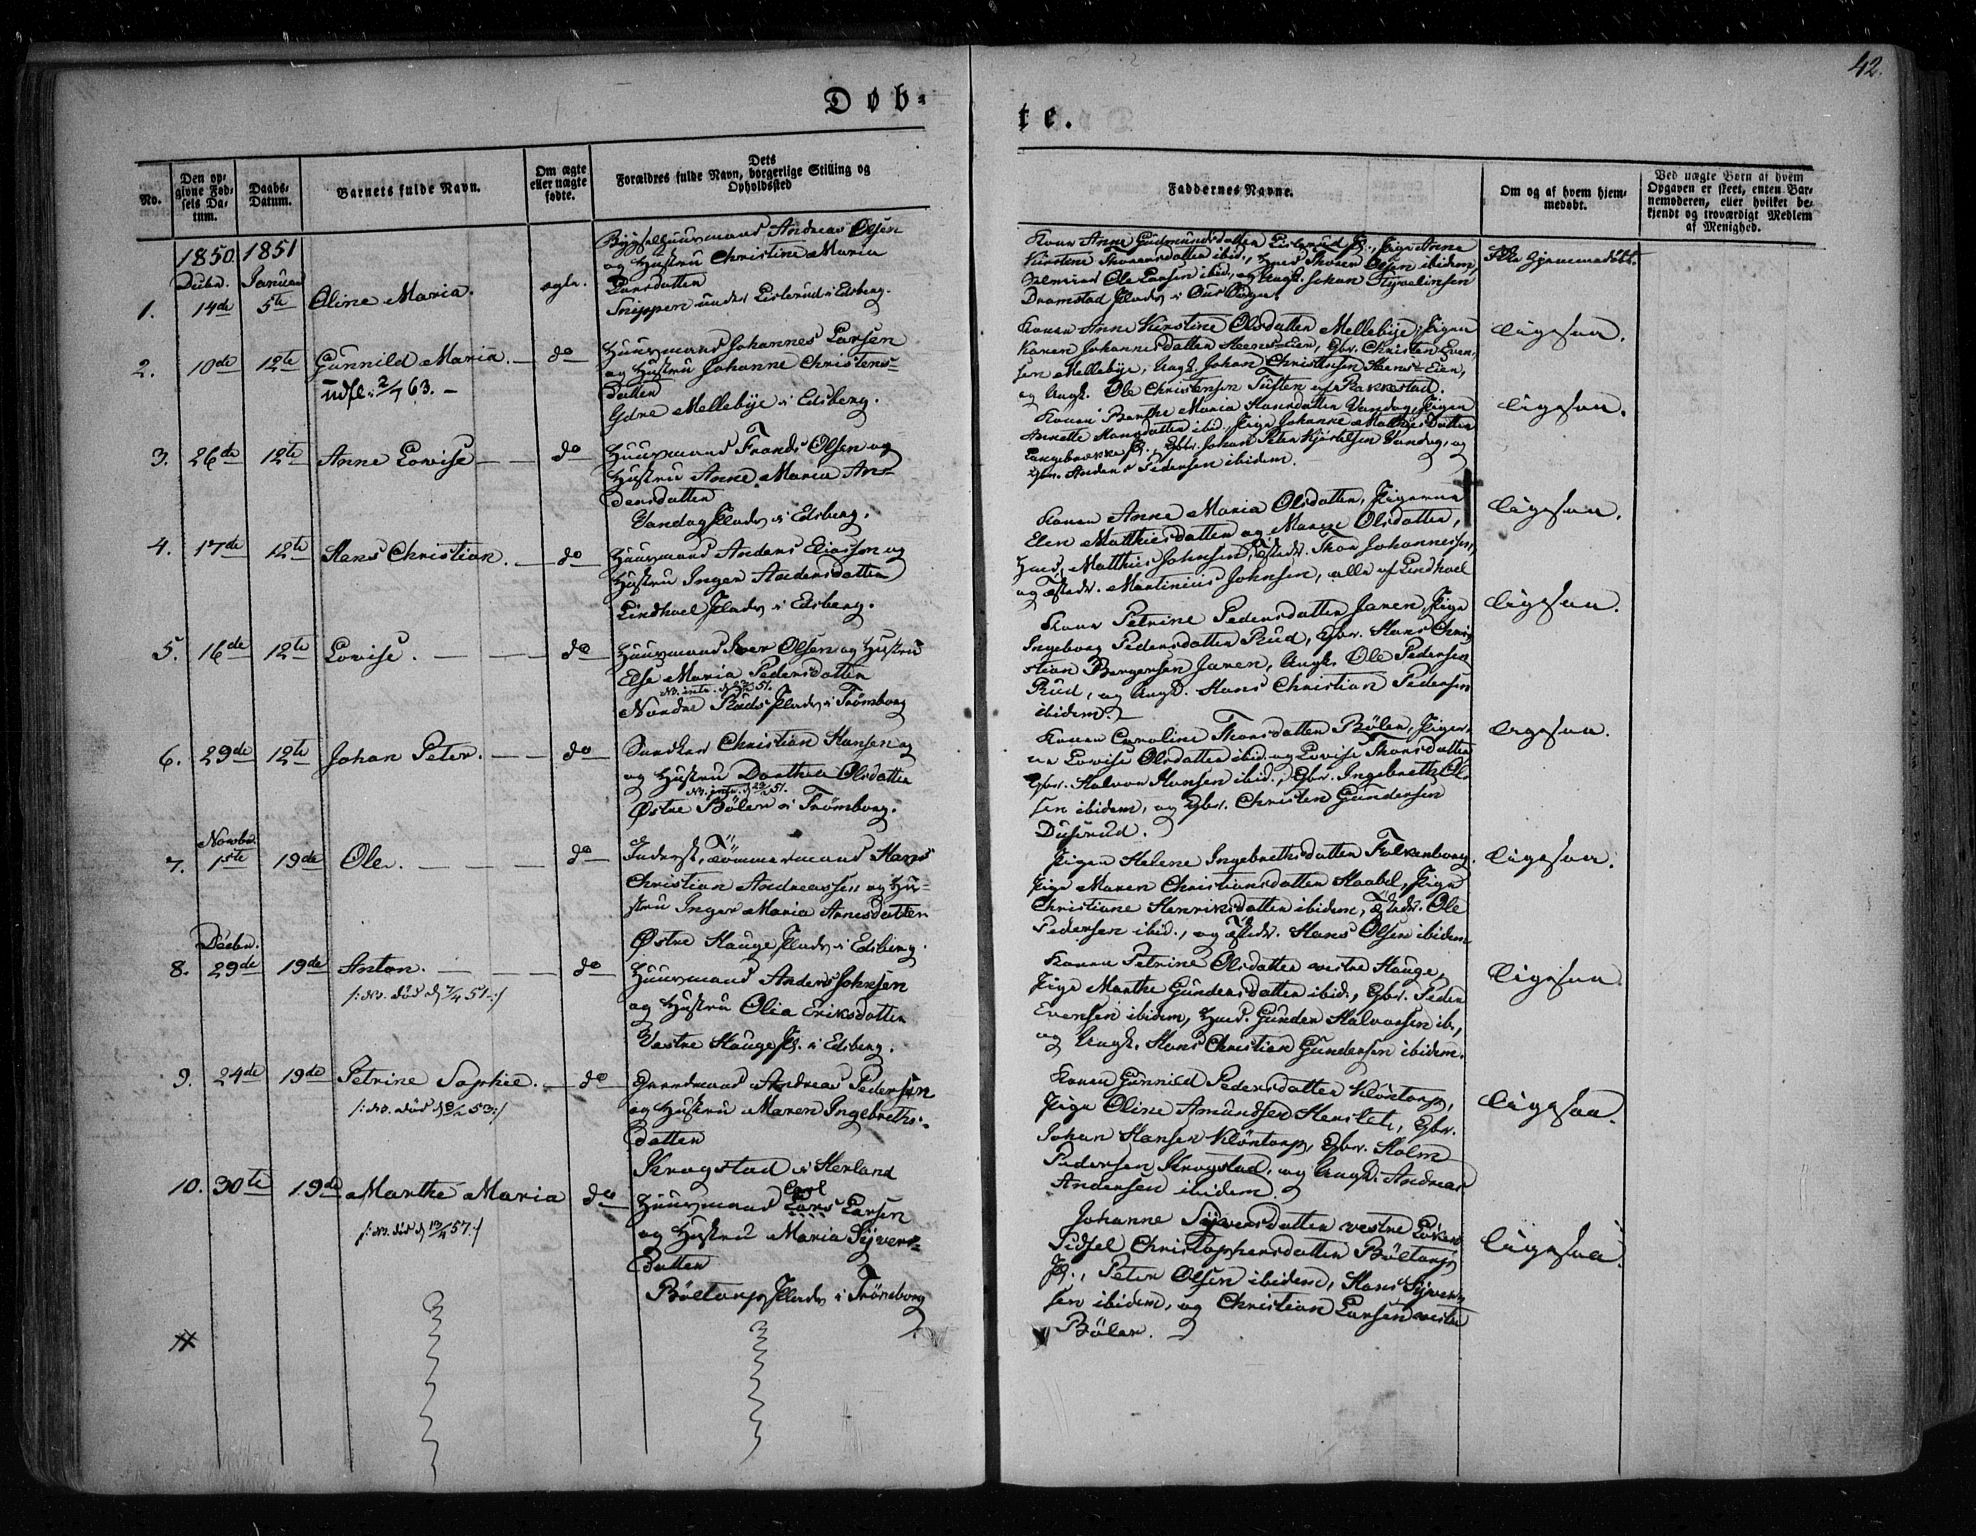 42.
Døb-
te.
No.
Den op-
givne Fød-
sels Da-
tum.
Daabs-
Datum.
Barnets fulde Navn.
Om ægte
eller uægte
fødte.
Dets
Forældres fulde Navn, borgerlige Stilling og
Opholdssted
Faddernes Navne.
Om og af hvem hjem-
medøbt.
Ved uægte Børn af hvem
Opgaven er skeet, enten Bar-
nemoderen, eller hvilket be-
kjendt og troværdigt Medlem
af Menighed.
1850 1851
Decbr. Januar
1. 14de 5te Oline Maria. ægte.
Huusmand Andreas Olsen
og Hustru Christine Maria
Larsdatter
Snippen under Lislerud i Edsberg.
Konen Anne Gudmundsdatter Lislerud Pl., Pige Anne
Kirstine Thorersdatter ibid., Huusmd. Thorer Olsen ibidem,
Ole Larsen ibid., og Ungk. Johan Syverinsen
Dramstad Plads i Ous Sogn.
Ikke hjemmedøbt.
2. 10de 12te Gunnild Maria. — do
udfl. 2/7 63. —
Huusmand Johannes Larsen
og Hustru Johanne Christens-
datter
Ydre Mellebye i Edsberg.
Konen Anne Kirstine Olsdatter Mellebye, Pigen
Karen Johannesdatter Steens-Eier, Gbr. Christen Even-
sen Mellebye, Ungk. Johan Christensen Steens-Eier,
og Ungk. Ole Christensen Tuften af Rakkestad.
ligesaa.
3. 26de 12te Anne Lovise — — do
Huusmand Frands Olsen og
Hustru Anne Maria An-
dersdatter
Vandug Plads i Edsberg.
Konen Berthe Maria Hansdatter Vandug, Pigen
Annette Hansdatter ibid., Pige Johanne Mathisdatter
Langebrække Pl., Gbr. Johan Peter Kjørelsen Vandug, og
Gbr. Anders Pedersen ibidem.
ligesaa.
4. 17de 12te Hans Christian. — do
Huusmand Anders Eliassen og
Hustru Inger Andersdatter
Lindhoel Plads i Edsberg.
Konen Anne Maria Olsdatter, Pigerne
Elen Matthisdatter og Maren Olsdatter,
Huusmd. Matthis Johnsen, Thor Johannessen,
og Martinius Johnsen, alle af Lindhoel
ligesaa.
5. 16de 12te Lovise. — — do
Huusmand Iver Olsen og Hustru
Else Maria Pedersdatter
Nordre Ruds Plads i Trømborg
Konen Petrine Pedersdatter Jaren, Pige
Ingeborg Pedersdatter Rud, Gbr. Hans Chri-
stian Borgersen Jaren, Ungk. Ole Pedersen
Rud, og Ungk. Hans Christian Pedersen
ibidem.
ligesaa.
6. 29de 12te Johan Peter. — — do
Christian Hansen og
og Hustru Dorthea Olsdatter
Østre Bøler i Trømborg.
Konen Caroline Thorsdatter Bøler, Piger-
ne Lovise Olsdatter ibid. og Lovise Thorsdatter
Gbr. Halvor Hansen ibid., Gbr. Ingebreth Ol-
sen ibidem, og Gbr. Christen Gundersen
Duserud.
ligesaa.
Novbr.
7. 1ste 19de Ole. — — — do
Inderst, Tömmermand Hans
Christian Andreassen og Hu-
stru Inger Maria Arnesdatter
Østre Hauge Plads i Edsberg.
Pigen Helene Ingebrethsdatter Falkenborg,
Pige Maren Christiansdatter Haabel, Pige
Christiane Henriksdatter ibidem, Ole
Pedersen ibid., og Hans Olsen ibidem
ligesaa.
Decbr.
8. 29de 19de Anton. — — — do
/: NB. død d 7/4 51. :/
Huusmand Anders Johnsen
og Hustru Olia Eriksdatter
Vestre Hauge Pl. i Edsberg.
Konen Petrine Olsdatter vestre Hauge,
Pige Marthe Gundersdatter ibid., Gbr. Peder
Evensen ibidem, Huusmd. Gunder Halvorsen ib.,
og Ungk. Hans Christian Gundersen ibidem.
ligesaa.
9. 24de 19de Petrine Sophie. — do
Gaardmand Andreas Pedersen
og Hustru Maren Ingebreths-
datter
Krogstad i Herland
Konen Gunnild Pedersdatter Kløntorp,
Pige Oline Amundsen Henstet, Gbr.
Johan Hansen Kløntorp, Gbr. Holm
Pedersen Krogstad, og Ungk. Andreas
Andersen ibidem.
ligesaa.
10. 30te 19de Marthe Maria do
Huusmand Lars Larsen
og Hustru Maria Syvers-
datter
Böltorp Plads i Trömborg
Johanne Syversdatter vestre Løken
Sidsel Christophersdatter Böltorp
Pl., Peter Olsen ibidem, Hans Syver-
sen ibidem, og Christian Larsen vestre
Bøler.
ligesaa.
11